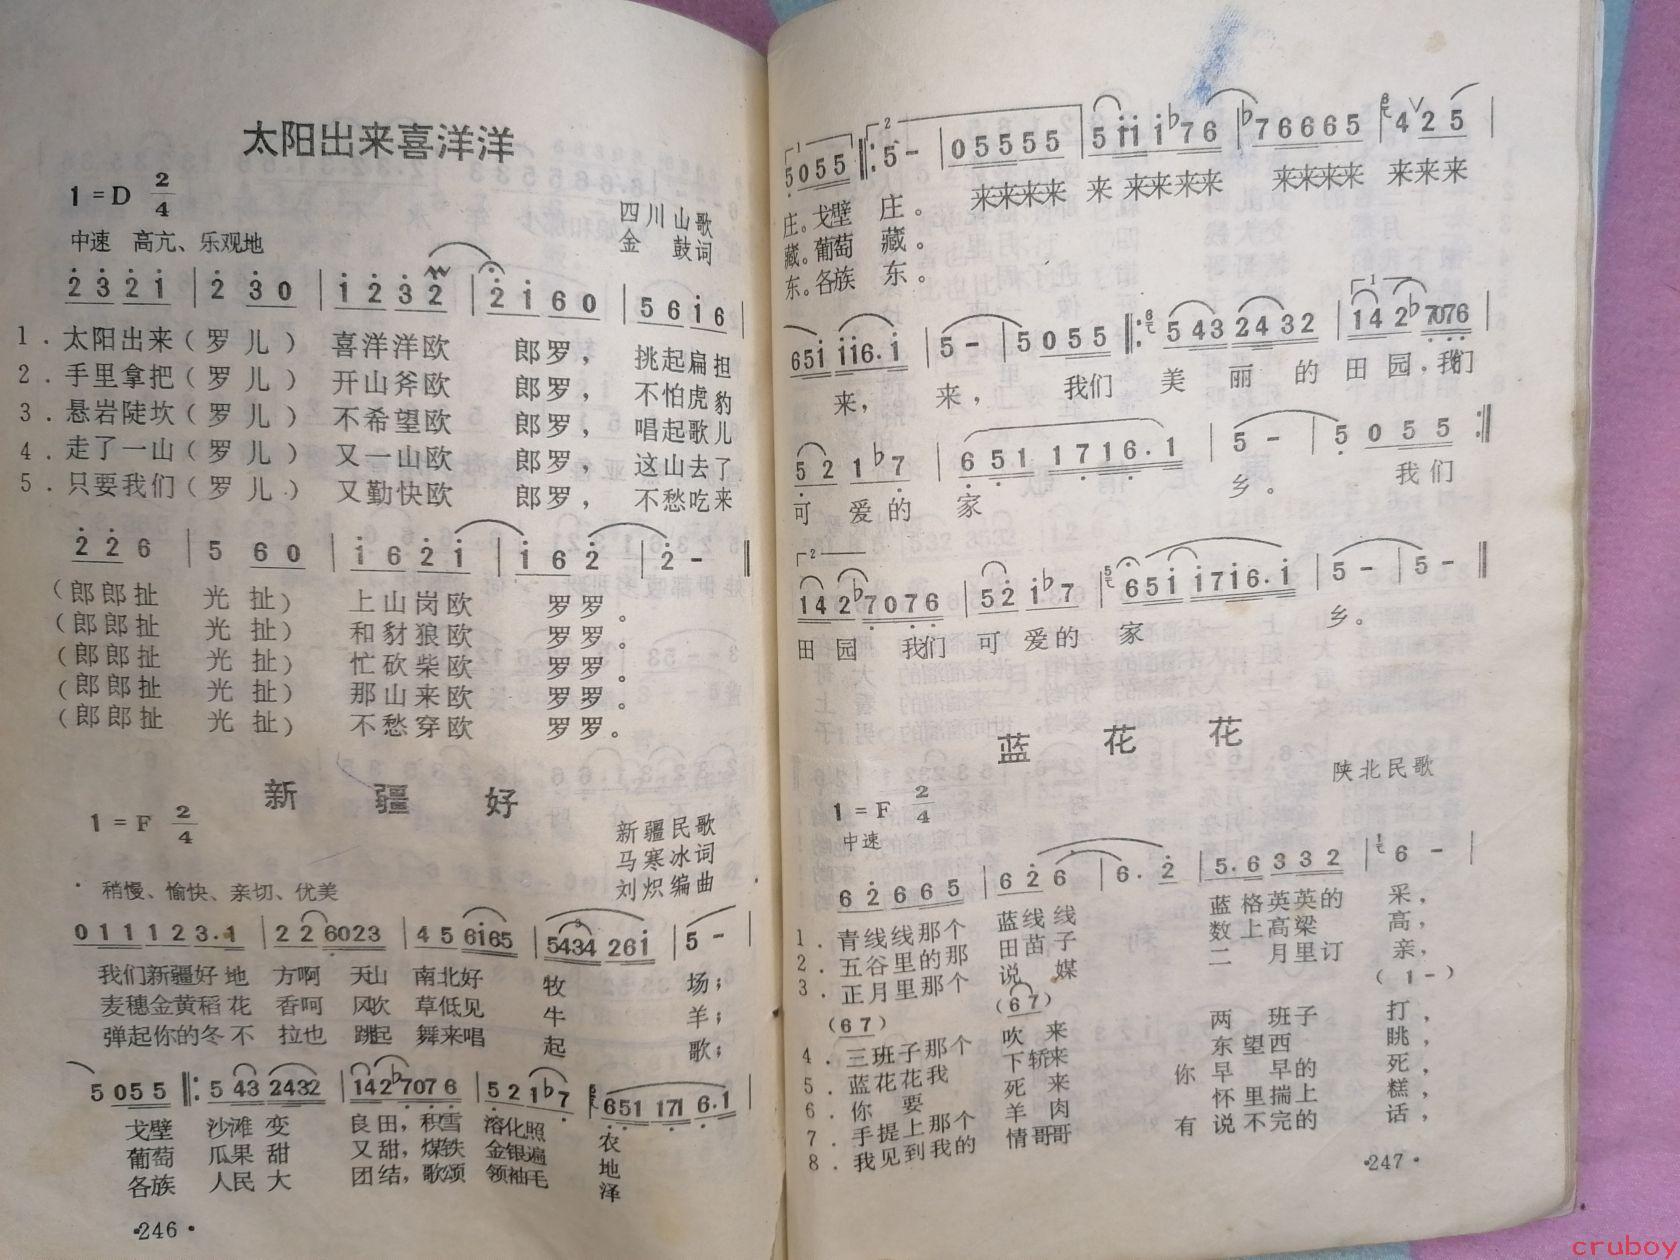 太阳出来喜洋洋
1=D 2/4
四川山歌
金 鼓词
中速 高亢、乐观地
2 3 2 1 | 2 3 0 | 1 2 3 2 | 2 1 6 0 | 5 6 1 6 |
1. 太阳出来(罗 儿) 喜洋洋欧 郎罗, 挑起扁担
2. 手里拿把(罗 儿) 开山斧欧 郎罗, 不怕虎豹
3. 悬岩陡坎(罗 儿) 不希望欧 郎罗, 唱起歌儿
4. 走了一山(罗 儿) 又一山欧 郎罗, 这山去了
5. 只要我们(罗 儿) 又勤快欧 郎罗, 不愁吃来
2 2 6 | 5 6 0 | 1 6 2 1 | 1 6 2 | 2 - ‖
(郎郎扯 光扯) 上山岗欧 罗罗。
(郎郎扯 光扯) 和豺狼欧 罗罗。
(郎郎扯 光扯) 忙砍柴欧 罗罗。
(郎郎扯 光扯) 那山来欧 罗罗。
(郎郎扯 光扯) 不愁穿欧 罗罗。
新疆好
1=F 2/4
新疆民歌
马寒冰词
刘炽编曲
稍慢、愉快、亲切、优美
0 1 1 1 2 3. 1 | 2 2 6023 | 4 5 6165 | 5434 261 | 5 - |
我们新疆好地 方啊 天山 南北好 牧 场;
麦穗金黄稻花 香呵 风吹 草低见 牛 羊;
弹起你的冬不 拉也 跳起 舞来唱 起 歌;
5 055 ‖: 5 43 2432 | 142 ♭7076 | 5 2 1 ♭7 | 651 171 6.1 |
戈壁 沙滩 变 良田,积雪 溶化照 农
葡萄 瓜果 甜 又甜,煤铁 金银遍 地
各族 人民 大 团结,歌颂 领袖毛 泽
·246·
5055 ‖: 5 - | 0 5 5 5 5 5 | 5 1 1 1 ♭7 6 | ♭7 6 6 6 6 5 | 4 2 5 |
庄。戈壁 庄。 来来来来 来 来来来来 来来来来 来来来
藏。葡萄 藏。
东。各族 东。
651 116.1 | 5 - | 5 0 5 5 ‖: 5 43 2432 | 142 ♭7076 |
来, 来, 我们 美 丽 的 田园,我们
5 2 1 ♭7 | 6 5 1 1 7 1 6. 1 | 5 - | 5 0 5 5 :‖
可 爱的 家 乡。 我们
142 ♭7076 | 52 1 ♭7 | 651 1716.1 | 5 - | 5 - ‖
田 园 我们 可 爱的 家 乡。
蓝花花
陕北民歌
1=F 2/4
中速
6 2 6 6 5 | 6 2 6 | 6. 2 | 5. 6 3 3 2 | 6 - |
1. 青线线那个 蓝线线 蓝格英英的 采,
2. 五谷里的那 田苗子 数上高梁 高,
3. 正月里那个 说 媒 二 月里订 亲,
(67) (67) (1 -)
4. 三班子那个 吹 来 两 班子 打,
5. 蓝花花我 下轿来 东望西 眺,
6. 你 要 死 来 你 早 早的 死,
7. 手提上那个 羊 肉 怀里揣上 糕,
8. 我见到我的 情哥哥 有 说不完的 话,
·247·
cruboy